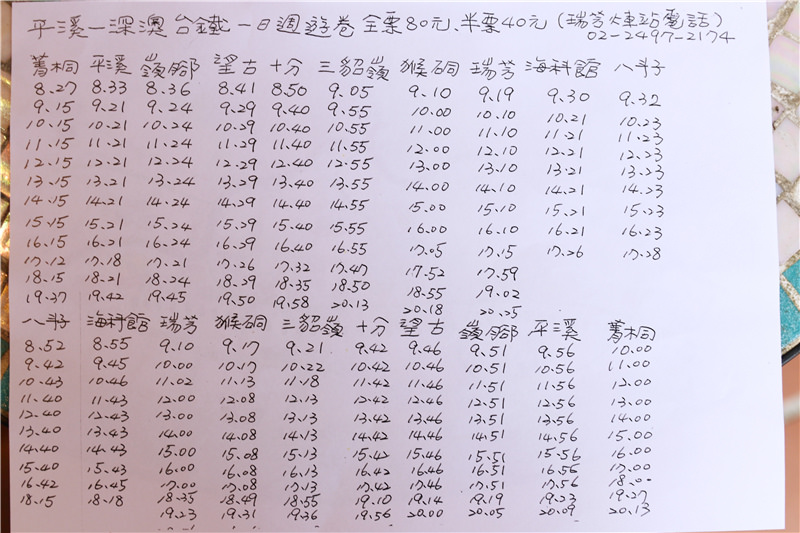 平溪一深澳 台鐵 一日週遊卷 全票80元、半票40元 (瑞芳火車站電話)
02-2497-2174
菁桐 平溪 嶺腳 望古 十分 三貂嶺 猴硐 瑞芳 海科館 八斗子
8.27 8.33 8.36 8.41 8.50 9.05 9.10 9.19 9.30 9.32
9.15 9.21 9.24 9.29 9.40 9.55 10.00 10.10 10.21 10.23
10.15 10.21 10.24 10.29 10.40 10.55 11.00 11.10 11.21 11.23
11.15 11.21 11.24 11.29 11.40 11.55 12.00 12.10 12.21 12.23
12.15 12.21 12.24 12.29 12.40 12.55 13.00 13.10 13.21 13.23
13.15 13.21 13.24 13.29 13.40 13.55 14.00 14.10 14.21 14.23
14.15 14.21 14.24 14.29 14.40 14.55 15.00 15.10 15.21 15.23
15.15 15.21 15.24 15.29 15.40 15.55 16.00 16.10 16.21 16.23
16.15 16.21 16.24 16.29 16.40 16.55 17.05 17.15 17.26 17.28
17.12 17.18 17.21 17.26 17.32 17.47 17.52 17.59
18.15 18.21 18.24 18.29 18.35 18.50 18.55 19.02
19.37 19.42 19.45 19.50 19.58 20.13 20.18 20.25
八斗子 海科館 瑞芳 猴硐 三貂嶺 十分 望古 嶺腳 平溪 菁桐
8.52 8.55 9.10 9.17 9.21 9.42 9.46 9.51 9.56 10.00
9.42 9.45 10.00 10.17 10.22 10.42 10.46 10.51 10.56 11.00
10.43 10.46 11.02 11.13 11.18 11.42 11.46 11.51 11.56 12.00
11.40 11.43 12.00 12.08 12.13 12.42 12.46 12.51 12.56 13.00
12.40 12.43 13.00 13.08 13.13 13.42 13.46 13.51 13.56 14.00
13.40 13.43 14.00 14.08 14.13 14.42 14.46 14.51 14.56 15.00
14.40 14.43 15.00 15.08 15.13 15.42 15.46 15.51 15.56 16.00
15.40 15.43 16.00 16.08 16.13 16.42 16.46 16.51 16.56 17.00
16.42 16.45 17.00 17.08 17.13 17.42 17.46 17.51 17.56 18.00
18.15 18.18 18.35 18.49 18.55 19.10 19.14 19.19 19.23 19.27
19.23 19.31 19.36 19.56 20.00 20.05 20.09 20.13